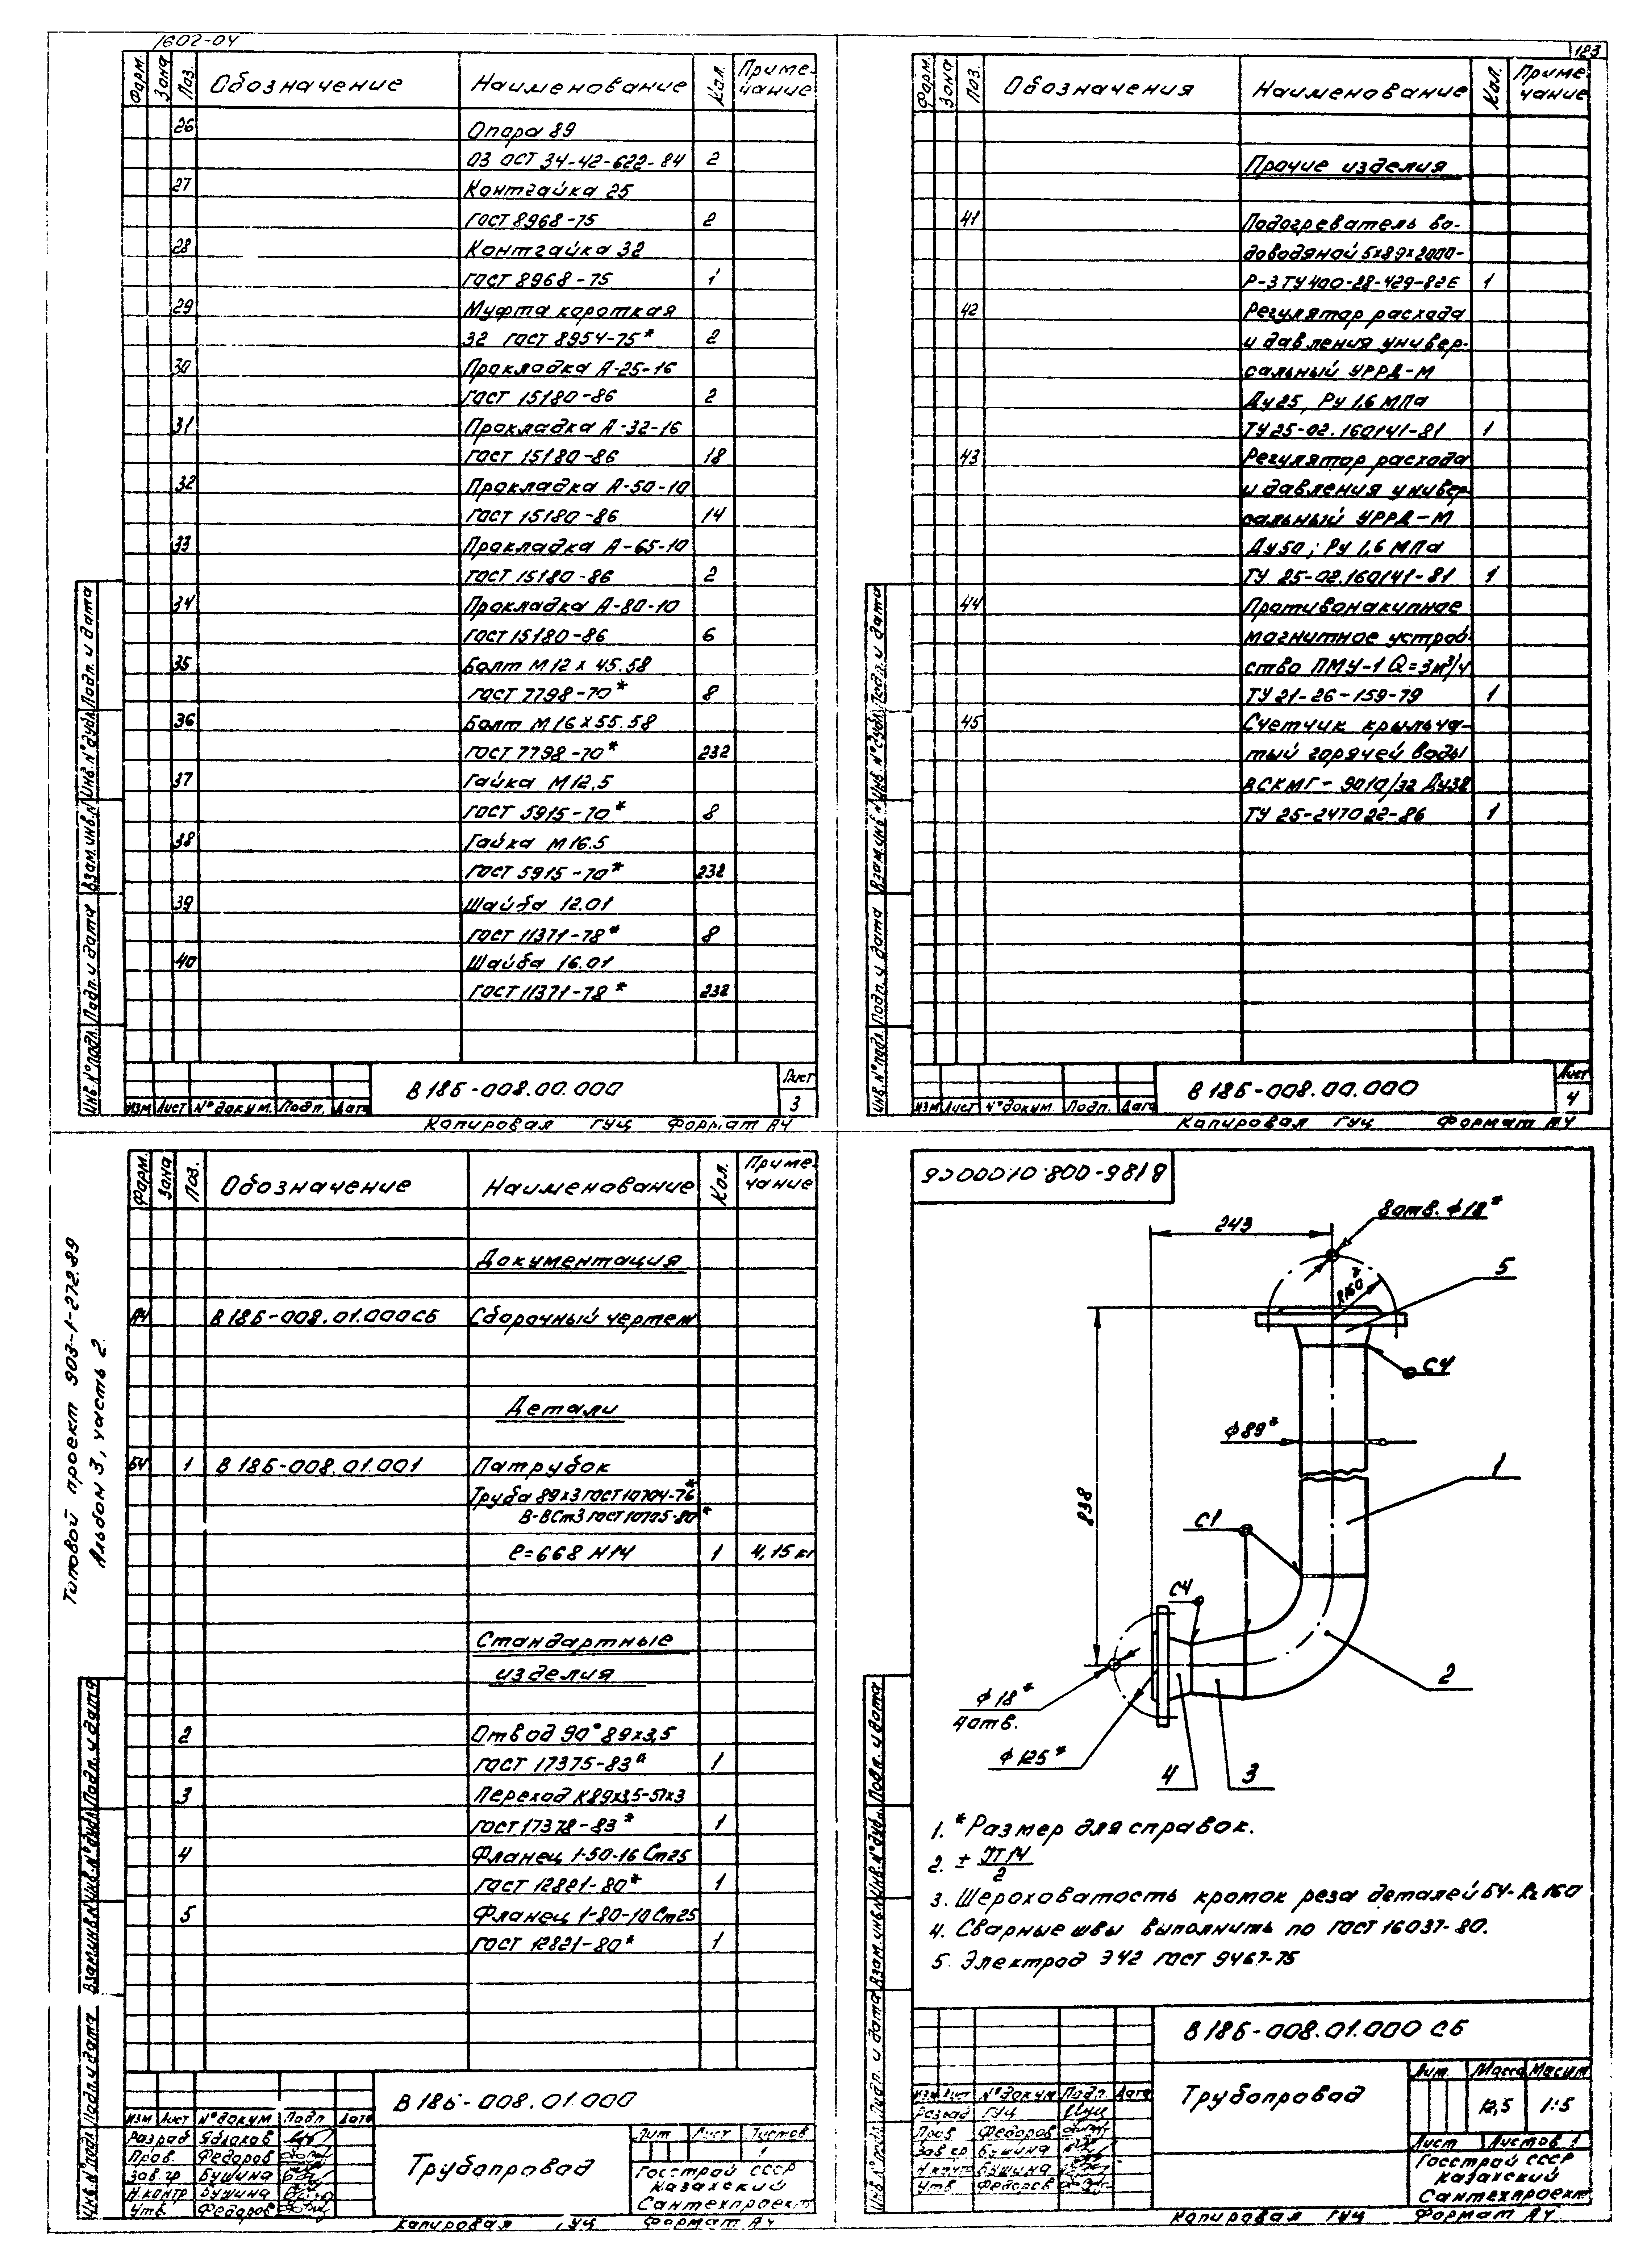 1602-04
123
Форм. Зона Поз. Обозначение Наименование Кол. Примечание
26 Опора 89
03 ОСТ 34-42-622-84 2
27 Контгайка 25
ГОСТ 8968-75 2
28 Контгайка 32
ГОСТ 8968-75 1
29 Муфта короткая
32 ГОСТ 8954-75* 2
30 Прокладка А-25-16
ГОСТ 15180-86 2
31 Прокладка А-32-16
ГОСТ 15180-86 18
32 Прокладка А-50-10
ГОСТ 15180-86 14
33 Прокладка А-65-10
ГОСТ 15180-86 2
34 Прокладка А-80-10
ГОСТ 15180-86 6
35 Болт М12 х 45.58
ГОСТ 7798-70* 8
36 Болт М16 х 55.58
ГОСТ 7798-70* 232
37 Гайка М12,5
ГОСТ 5915-70* 8
38 Гайка М16.5
ГОСТ 5915-70* 232
39 Шайба 12.01
ГОСТ 11371-78* 8
40 Шайба 16.01
ГОСТ 11371-78* 232
Инв.№подл. Подп. и дата Взам.инв.№ Инв.№дубл. Подп. и дата
Изм Лист №докум. Подп. Дата
В 18Б-008.00.000
Лист
3
Копировал ГУЦ Формат А4
Форм. Зона Поз. Обозначения Наименование Кол. Примечание
Прочие изделия
41 Подогреватель во-
доводяной 5х89х2000-
Р-3 ТУ 400-28-429-82Е 1
42 Регулятор расхода
и давления универ-
сальный УРРД-М
Ду 25, Ру 1,6 МПа
ТУ 25-02.160141-81 1
43 Регулятор расхода
и давления универ-
сальный УРРД-М
Ду 50; Ру 1,6 МПа
ТУ 25-02.160141-81 1
44 Противонакипное
магнитное устрой-
ство ПМУ-1 Q=3м³/ч
ТУ 21-26-159-79 1
45 Счетчик крыльча-
тый горячей воды
ВСКМГ-90 10/32 Ду32
ТУ 25-247022-86 1
Инв.№подл. Подп. и дата Взам.инв.№ Инв.№дубл. Подп. и дата
Изм Лист №докум. Подп. Дата
В 18Б-008.00.000
Лист
4
Копировал ГУЦ Формат А4
Типовой проект 903-1-272.89
Альбом 3, часть 2.
Форм. Зона Поз. Обозначение Наименование Кол. Примечание
Документация
А4 В 18Б-008.01.000СБ Сборочный чертеж
Детали
БЧ 1 В 18Б-008.01.001 Патрубок
Труба 89х3 ГОСТ 10704-76*
В-ВСт3 ГОСТ 10705-80*
ℓ=668 Н14 1 4,15 кг
Стандартные
изделия
2 Отвод 90° 89х3,5
ГОСТ 17375-83* 1
3 Переход К89х3,5-57х3
ГОСТ 17378-83* 1
4 Фланец 1-50-16 Ст25
ГОСТ 12821-80* 1
5 Фланец 1-80-10 Ст25
ГОСТ 12821-80* 1
Инв.№подл. Подп. и дата Взам.инв.№ Инв.№дубл. Подп. и дата
В 18Б-008.01.000
Изм Лист №докум Подп Дата
Разраб Яблоков
Пров. Федоров
Зав.гр Бушина
Н.контр Бушина
Утв Федоров
Трубопровод
Лит Лист Листов
1
Госстрой СССР
Казахский
Сантехпроект
Копировал ГУЦ Формат А4
В 18Б-008.01.000СБ
243
8 отв. ф18*
R160*
5
С4
ф89*
1
838
С1
С4
2
ф18*
4 отв.
ф125*
4
3
1. *Размер для справок.
2. ± IT14/2
3. Шероховатость кромок реза деталей БЧ- Rz 160
4. Сварные швы выполнить по ГОСТ 16037-80.
5. Электрод Э42 ГОСТ 9467-75
Инв.№подл. Подп. и дата Взам.инв.№ Инв.№дубл. Подп. и дата
В 18Б-008.01.000 СБ
Изм Лист №докум Подп. Дата
Разраб ГУЦ
Пров Федоров
Зав гр Бушина
Н.контр Бушина
Утв Федоров
Трубопровод
Лит. Масса Масшт
12,5 1:5
Лист Листов 1
Госстрой СССР
Казахский
Сантехпроект
Копировал ГУЦ Формат А4